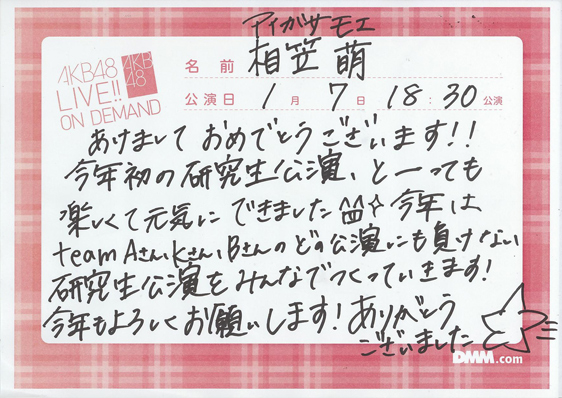 アイガサ モエ
AKB48
LIVE!!
ON DEMAND
AKB
48
名前 相笠 萌
公演日 1月 7日 18:30公演
あけまして おめでとうございます!!
今年初の研究生公演、とーっても
楽しくて元気に できました 今年は
team Aさん、Kさん、Bさんのどの公演にも負けない
研究生公演をみんなでつくっていきます!
今年もよろしくお願いします! ありがとう
ございました
DMM.com